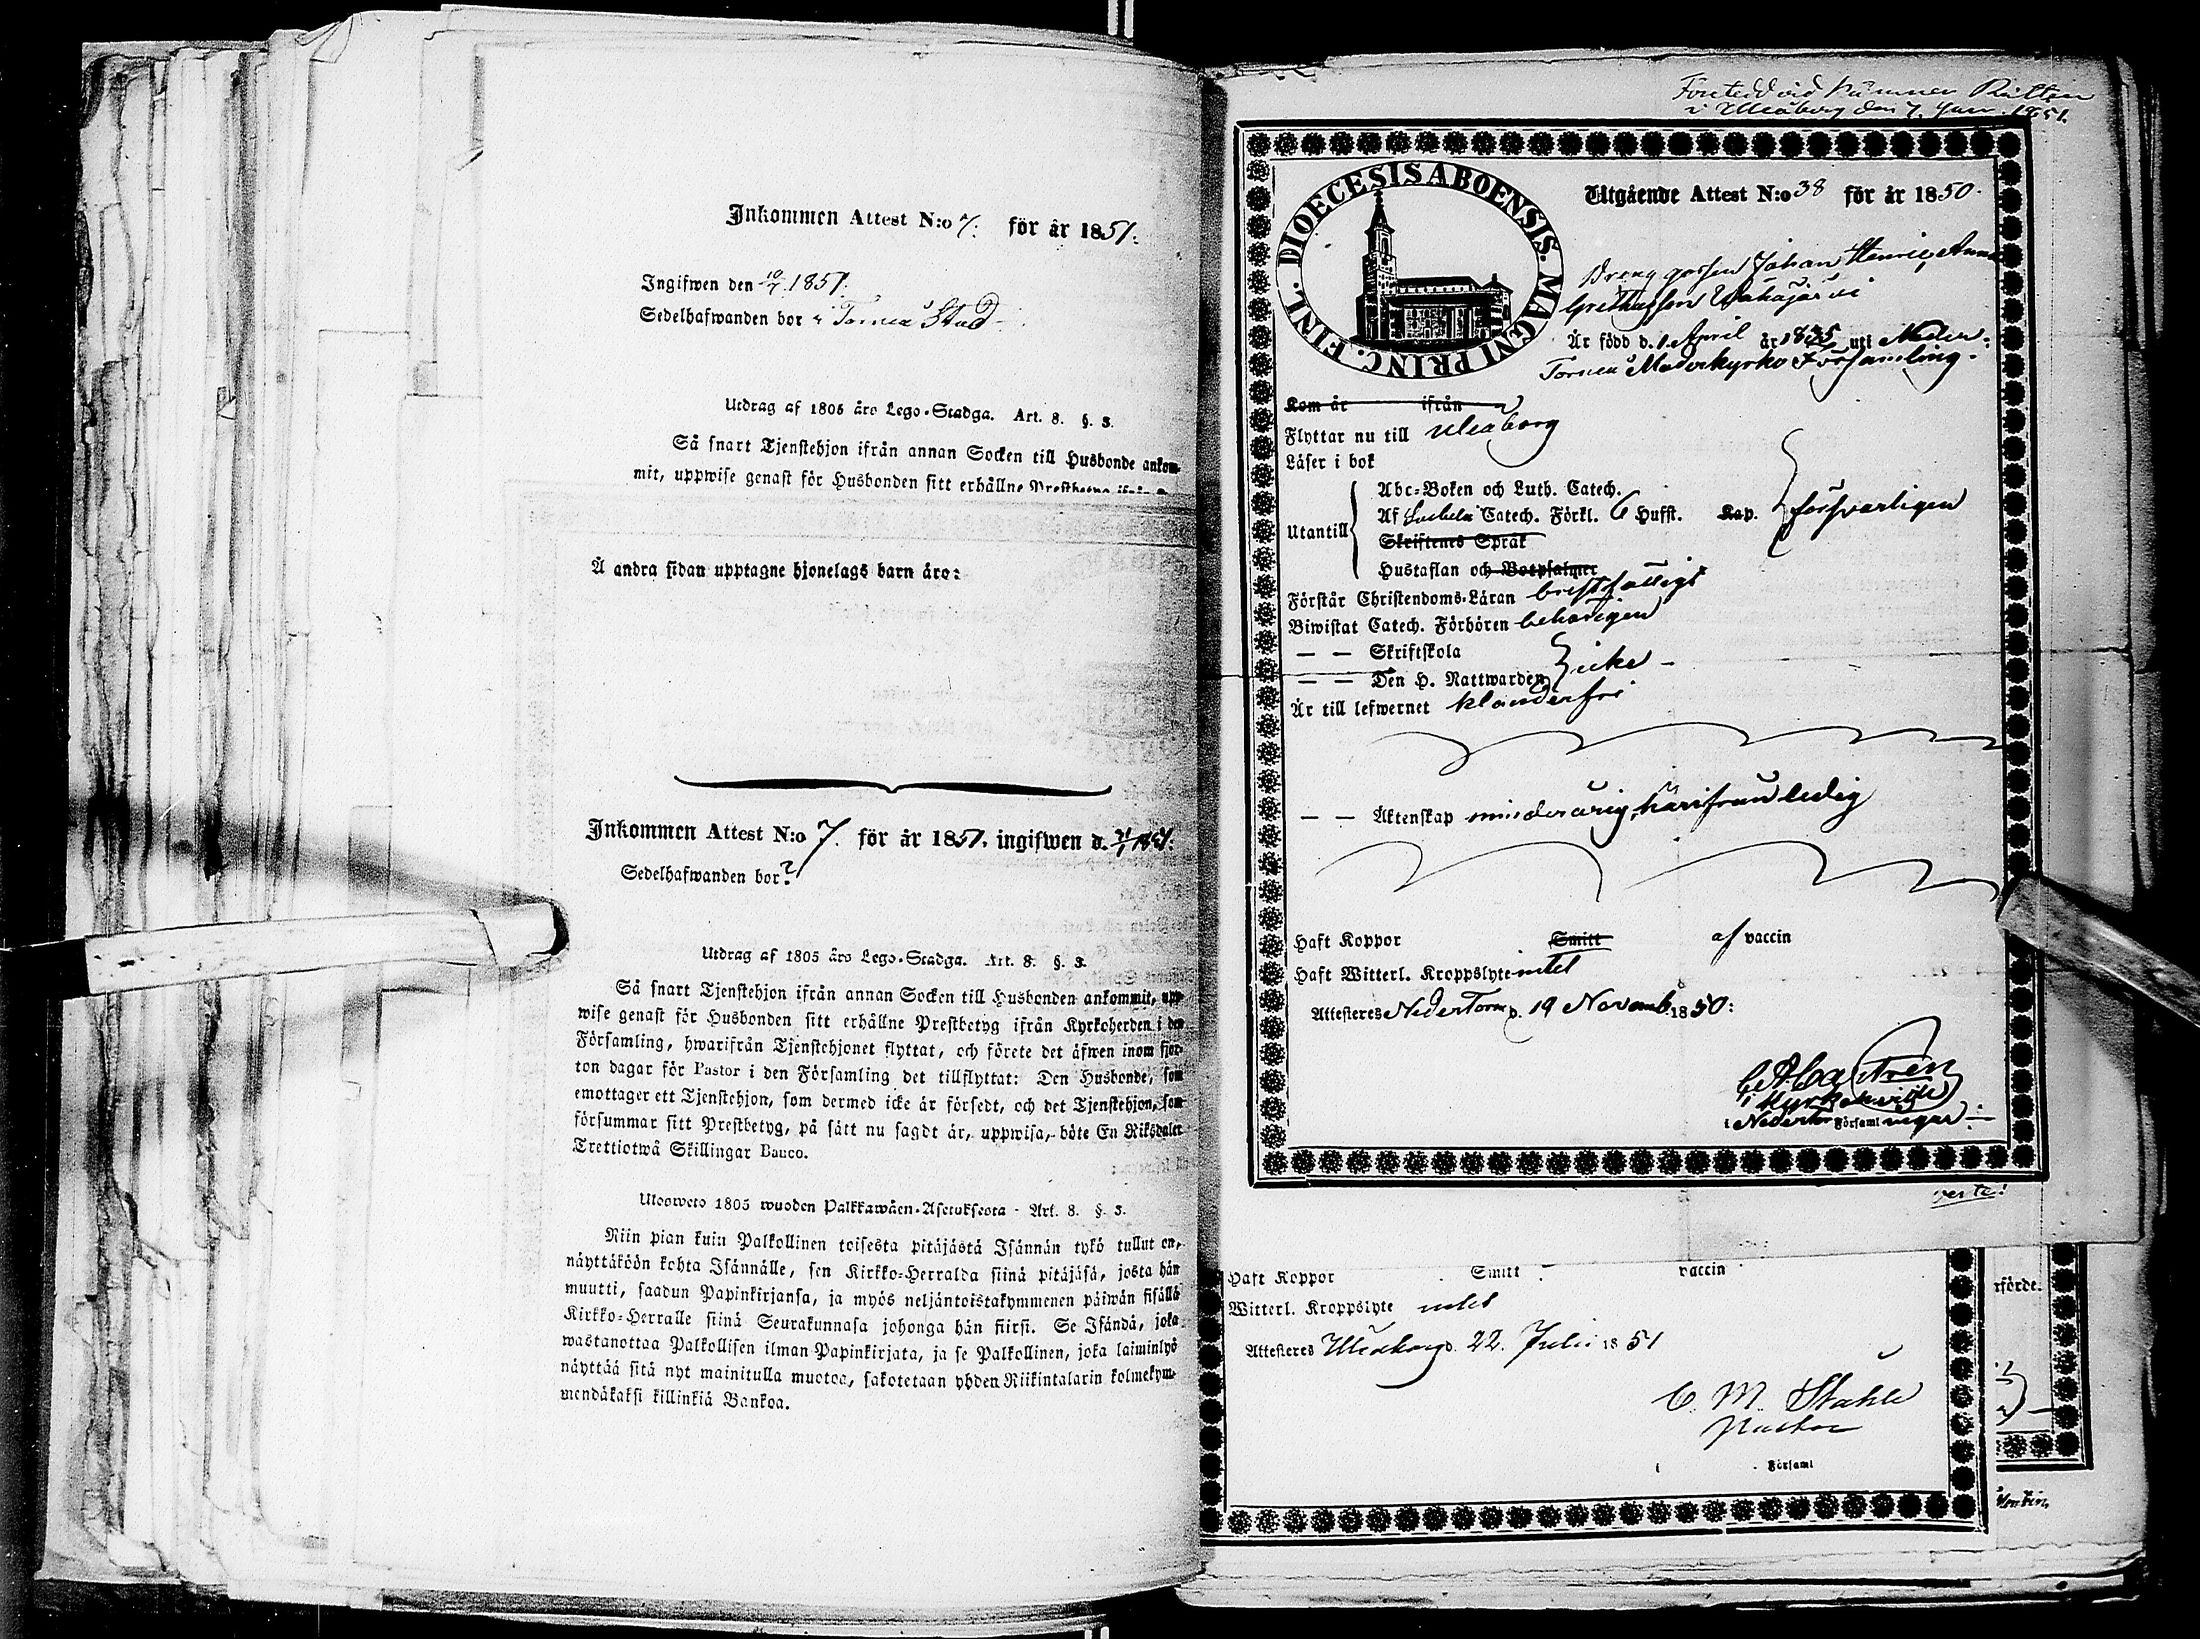 Inkommen Attest N:o 7. för år 1851.
Ingifwen den 10/7 1851.
Sedelhafwanden bor i Torneå Stad
Utdrag af 1805 års Lego-Stadga. Art. 8. §. 3.
Så snart Tjenstehjon ifrån annan Socken till Husbonde ankom-
mit, uppwise genast för Husbonden sitt erhållne Prestbetyg ifrån
Å andra sidan upptagne hjonelags barn äro:
Inkommen Attest N:o 7. för år 1851. ingifwen d.
Sedelhafwanden bor?
Utdrag af 1805 års Lego-Stadga. Art. 8. §. 3.
Så snart Tjenstehjon ifrån annan Socken till Husbonden ankommit, upp-
wise genast för Husbonden sitt erhållne Prestbetyg ifrån Kyrkoherden i den
Församling, hwarifrån Tjenstehjonet flyttat, och förete det äfwen inom fjor-
ton dagar för Pastor i den Församling det tillflyttat: Den Husbonde, som
emottager ett Tjenstehjon, som dermed icke är försedt, och det Tjenstehjon, som
försummar sitt Prestbetyg, på sätt nu sagdt är, uppwisa, böte En Riksdaler
Trettiotwå Skillingar Banco.
Ulosweto 1805 wuoden Palkkawäen-Asetuksesta - Art. 8. §. 3.
Niin pian kuin Palkollinen toisesta pitäjästä Isännän tykö tullut on,
näyttäköön kohta Isännälle, sen Kirkko-Herralda siinä pitäjäsä, josta hän
muutti, saadun Papinkirjansa, ja myös neljäntoistakymmenen päiwän sisällä
Kirkko-Herralle siinä Seurakunnasa johonga hän siirsi. Se Isändä, joka
wastanottaa Palkollisen ilman Papinkirjata, ja se Palkollinen, joka laiminlyö
näyttää sitä nyt mainitulla muotoa, sakotetaan yhden Riikintalarin kolmekym-
mendäkaksi killinkiä Bankoa.
Företedd vid Kämners Rätten
i Uleåborg den 7. Jan. 1851.
DIOECESIS ABOENSIS. MAGNI PRINC. FINL.
Utgående Attest N:o 38 för år 1850.
Dreng gossen Johan Henric Anna
Grethasson Wahajärvi
Är född d. 1 April år 1835 uti Neder-
Torneå Moderkyrko Församling.
Kom år ifrån
Flyttar nu till Uleåborg
Läser i bok
Abc-Boken och Luth. Catech.
Utantill Af Svebelii Catech. Förkl. 6 Hufst. Kap. försvarligen
Skriftenes Språk
Hustaflan och Botpsalmer
Förstår Christendoms-Läran bristfälligt
Biwistat Catech. Förhören behörigen
— — Skriftskola
— — Den H. Nattwarden icke
Är till lefwernet klanderfri
— — Äktenskap minderårig, härifrån ledig
Haft Koppor Smitt af vaccin
Haft Witterl. Kroppslyte intet
Attesteres NederTorn d. 19 Novemb. 1850:
Castrén
i Nedertor Församl ingar.
verte!
Haft Koppor Smitt vaccin
Witterl. Kroppslyte intet
Attesteres Uleåborg d. 22. Julii 1851
C. M. Stahle
Pastor
i Församl